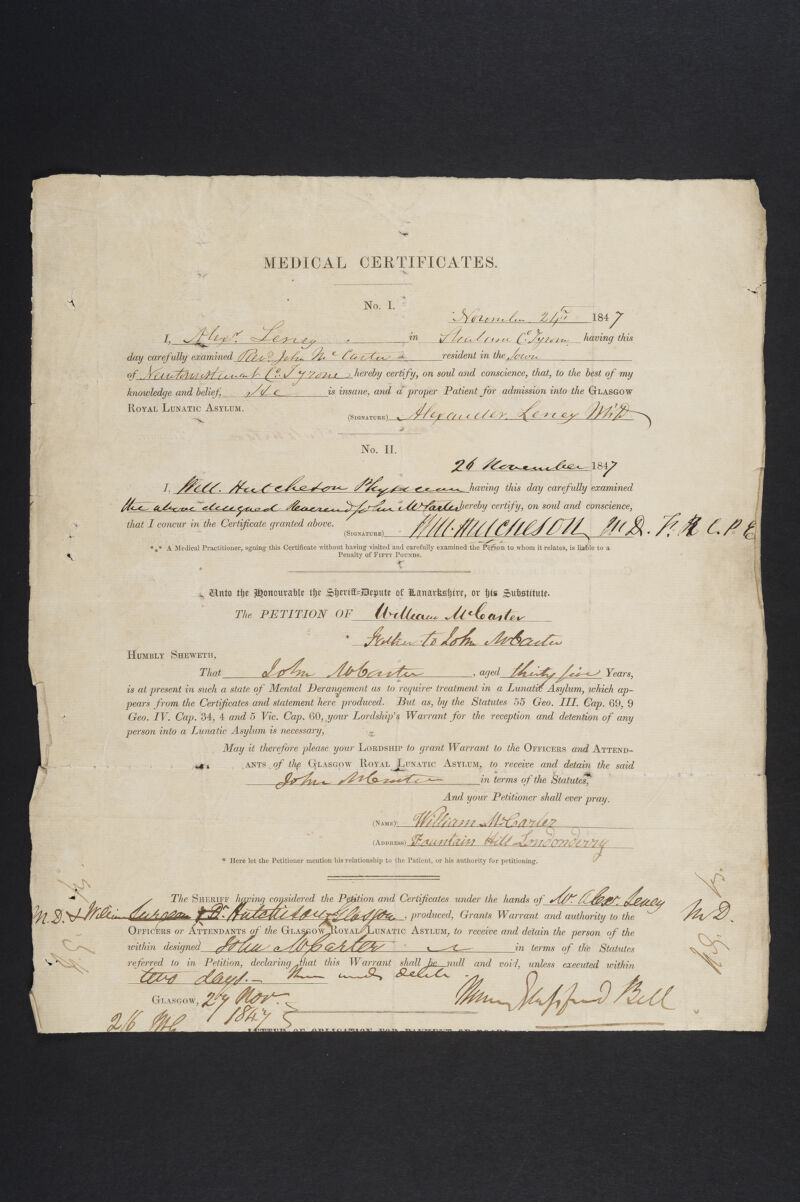 MEDICAL CERTIFICATES.
No. I.
November 24th 1847
I, Alexr. Leney in Co. Tyrone having this
day carefully examined Revd. John McCarter resident in the Town
of Newtownstewart Co. Tyrone hereby certify, on soul and conscience, that, to the best of my
knowledge and belief, He is insane, and a proper Patient for admission into the GLASGOW
ROYAL LUNATIC ASYLUM.
(SIGNATURE) Alexander Leney M.D
No. II.
26 November 1847
I, Will. Hutcheson Physician having this day carefully examined
the above designed Reverend John McCarter hereby certify, on soul and conscience,
that I concur in the Certificate granted above.
(SIGNATURE) Will. Hutcheson, M.D. F.R.C.P.E
*** A Medical Practitioner, signing this Certificate without having visited and carefully examined the Person to whom it relates, is liable to a
Penalty of FIFTY POUNDS.
Unto the Honourable the Sheriff-Depute of Lanarkshire, or his Substitute.
The PETITION OF William McCarter
* Father to John McCarter
HUMBLY SHEWETH,
That John McCarter, aged thirty five Years,
is at present in such a state of Mental Derangement as to require treatment in a Lunatic Asylum, which ap-
pears from the Certificates and statement here produced. But as, by the Statutes 55 Geo. III. Cap. 69, 9
Geo. IV. Cap. 34, 4 and 5 Vic. Cap. 60, your Lordship's Warrant for the reception and detention of any
person into a Lunatic Asylum is necessary,
May it therefore please your LORDSHIP to grant Warrant to the OFFICERS and ATTEND-
ANTS of the GLASGOW ROYAL LUNATIC ASYLUM, to receive and detain the said
John McCarter in terms of the Statutes,
And your Petitioner shall ever pray.
(NAME) William McCarter
(ADDRESS) Fountain Hill Londonderry
* Here let the Petitioner mention his relationship to the Patient, or his authority for petitioning.
The SHERIFF having considered the Petition and Certificates under the hands of Mr. Alexr. Leney M.D.
M.D. & William Surgeon & Dr. Hutchison Glasgow, produced, Grants Warrant and authority to the
OFFICERS or ATTENDANTS of the GLASGOW ROYAL LUNATIC ASYLUM, to receive and detain the person of the
within designed John McCarter in terms of the Statutes
referred to in Petition, declaring that this Warrant shall be null and void, unless executed within
two days. Three words delete.
GLASGOW, 27 Nov. 1847
Bell
LETTER OF OBLIGATION FOR PAYMENT OF BOARD